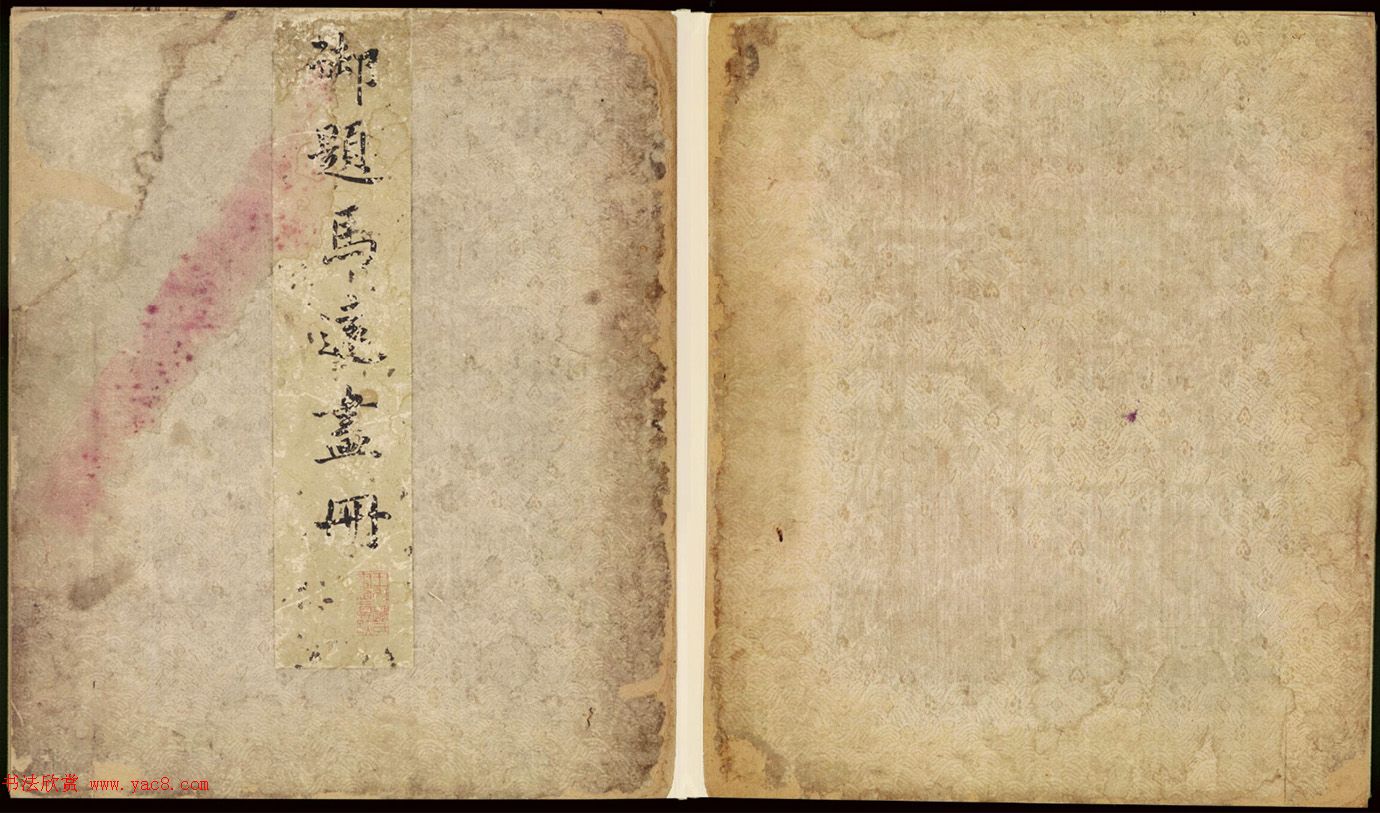 御題馬遠畫冊
书法欣赏 www.yac8.com